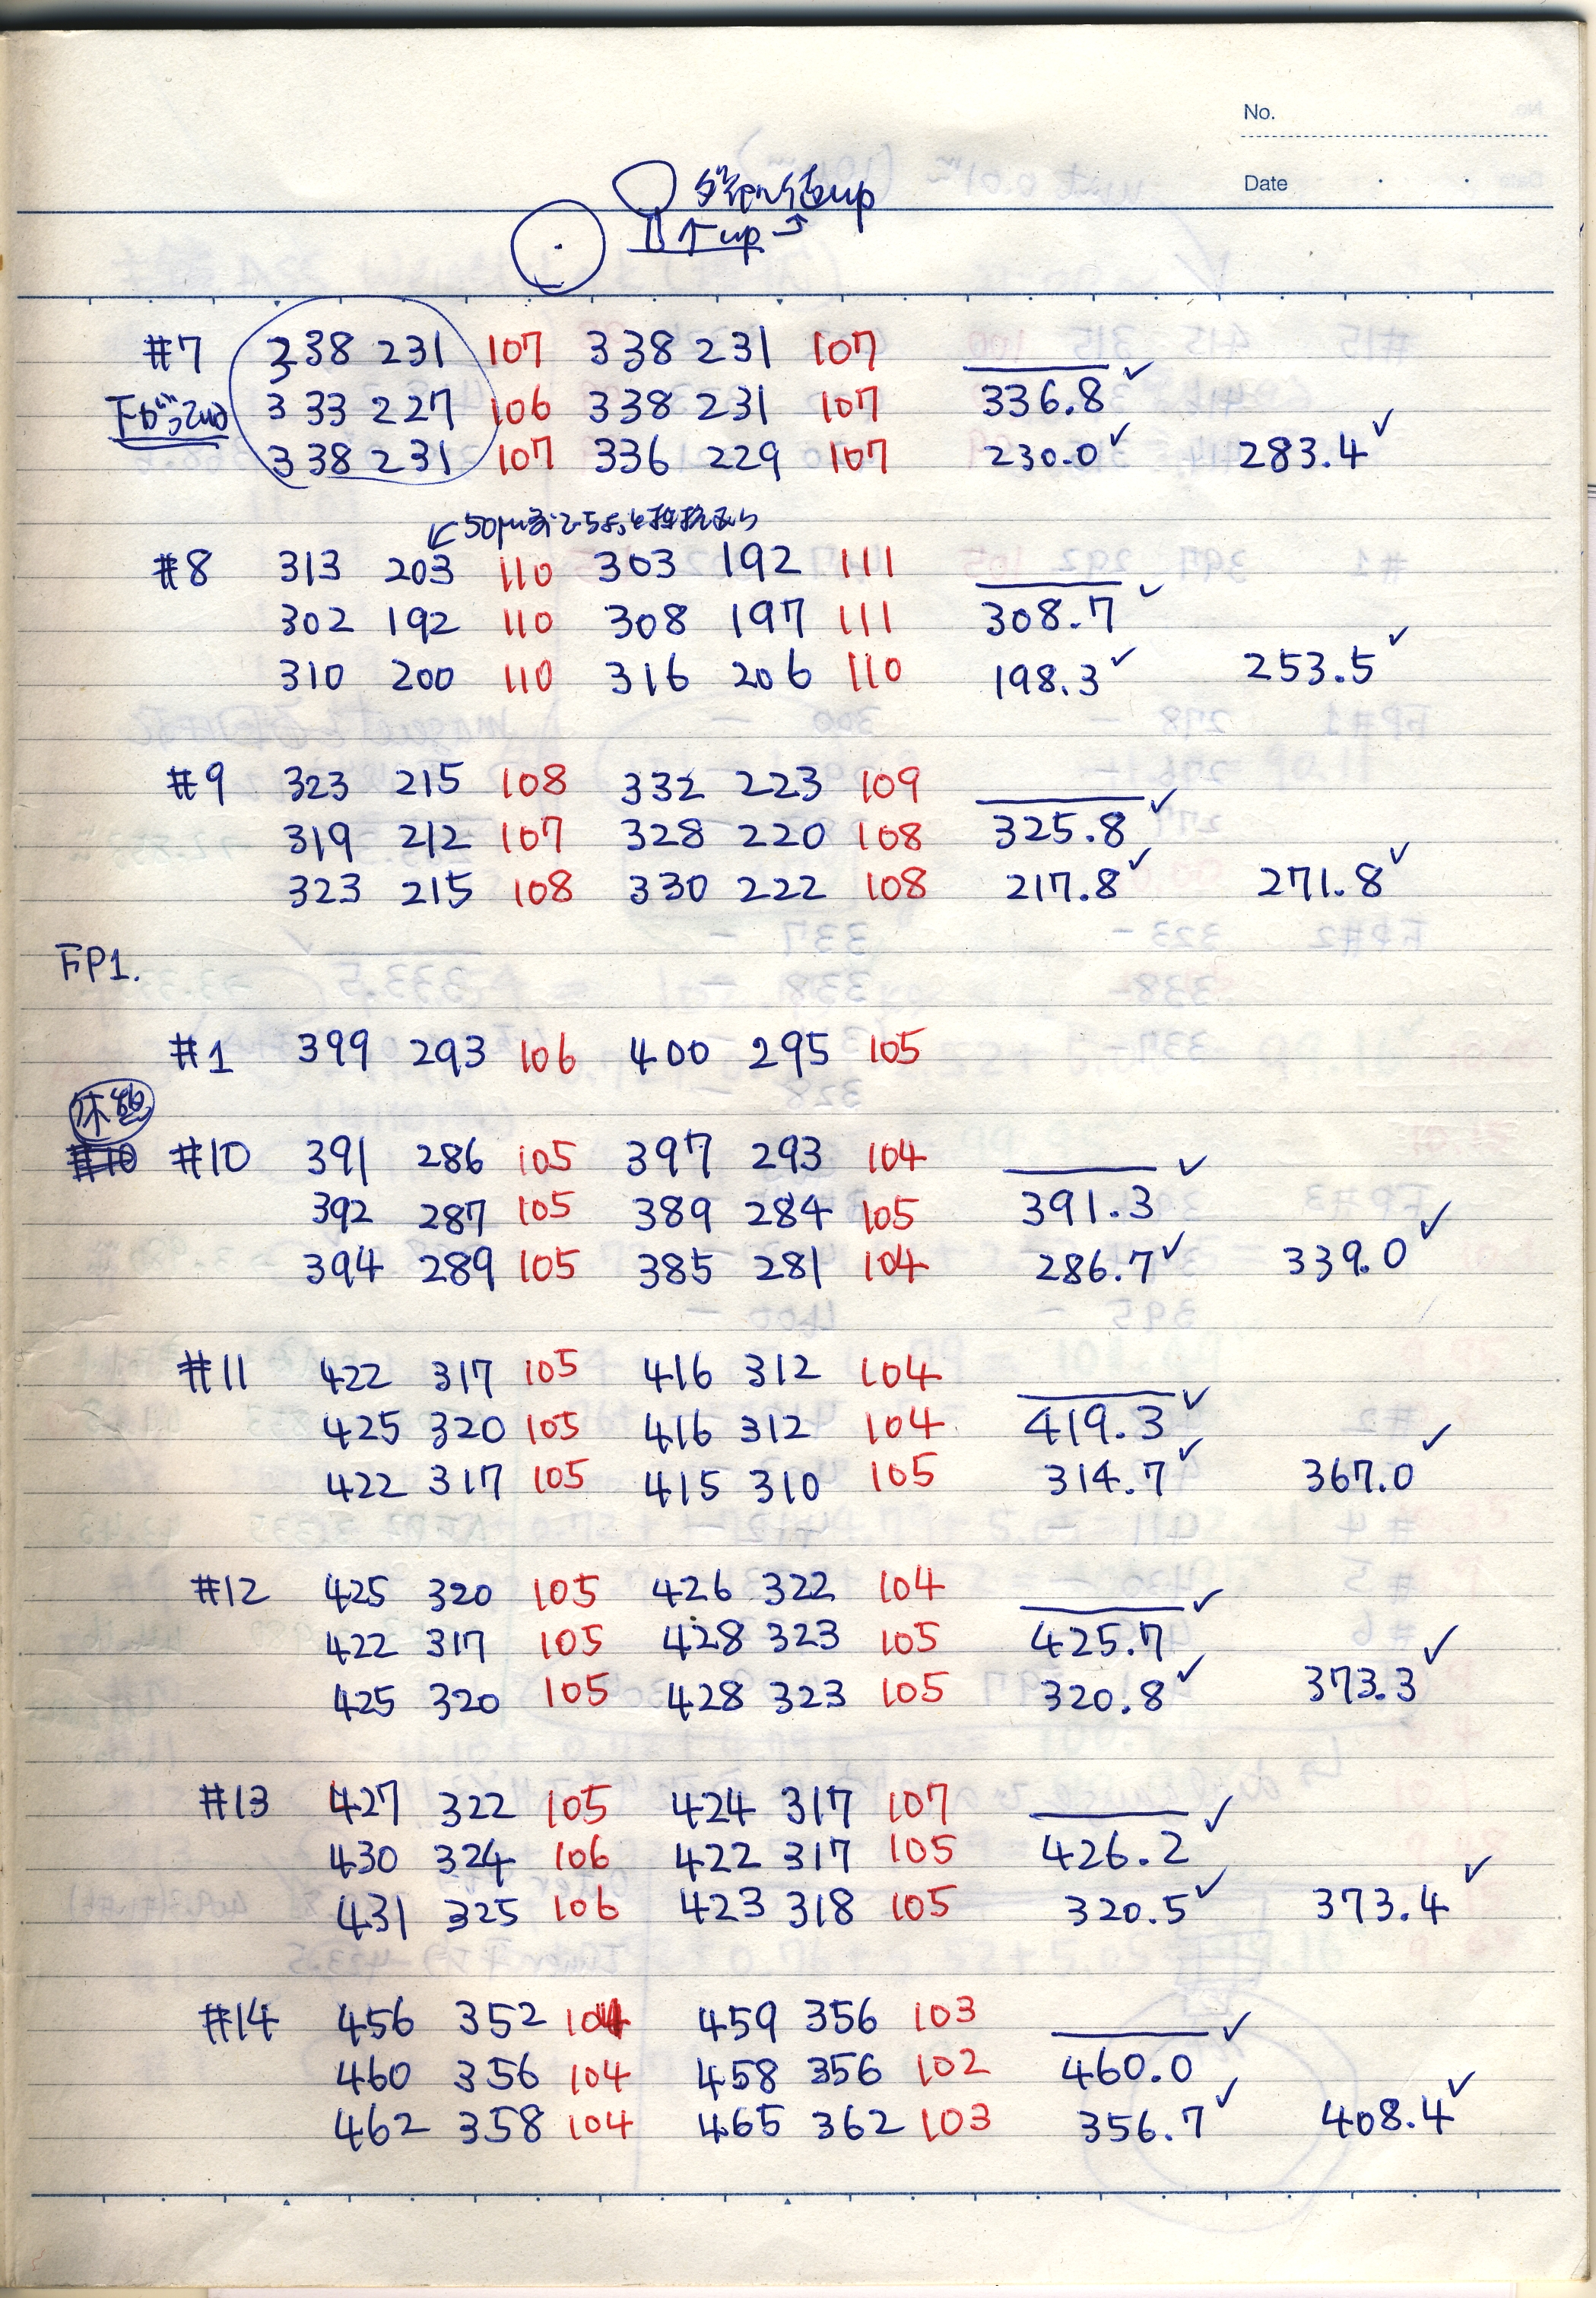 No.
Date
up
↑up→
#7 338 231 107 338 231 107
333 227 106 338 231 107 336.8 ✓
338 231 107 336 229 107 230.0 ✓ 283.4 ✓
↙50μm
#8 313 203 110 303 192 111
302 192 110 308 197 111 308.7 ✓
310 200 110 316 206 110 198.3 ✓ 253.5 ✓
#9 323 215 108 332 223 109
319 212 107 328 220 108 325.8 ✓
323 215 108 330 222 108 217.8 ✓ 271.8 ✓
FP1.
#1 399 293 106 400 295 105
休憩
#10 #10 391 286 105 397 293 104
392 287 105 389 284 105 391.3 ✓
394 289 105 385 281 104 286.7 ✓ 339.0 ✓
#11 422 317 105 416 312 104
425 320 105 416 312 104 419.3 ✓
422 317 105 415 310 105 314.7 ✓ 367.0 ✓
#12 425 320 105 426 322 104
422 317 105 428 323 105 425.7 ✓
425 320 105 428 323 105 320.8 ✓ 373.3 ✓
#13 427 322 105 424 317 107
430 324 106 422 317 105 426.2 ✓
431 325 106 423 318 105 320.5 ✓ 373.4 ✓
#14 456 352 104 459 356 103
460 356 104 458 356 102 460.0 ✓
462 358 104 465 362 103 356.7 ✓ 408.4 ✓